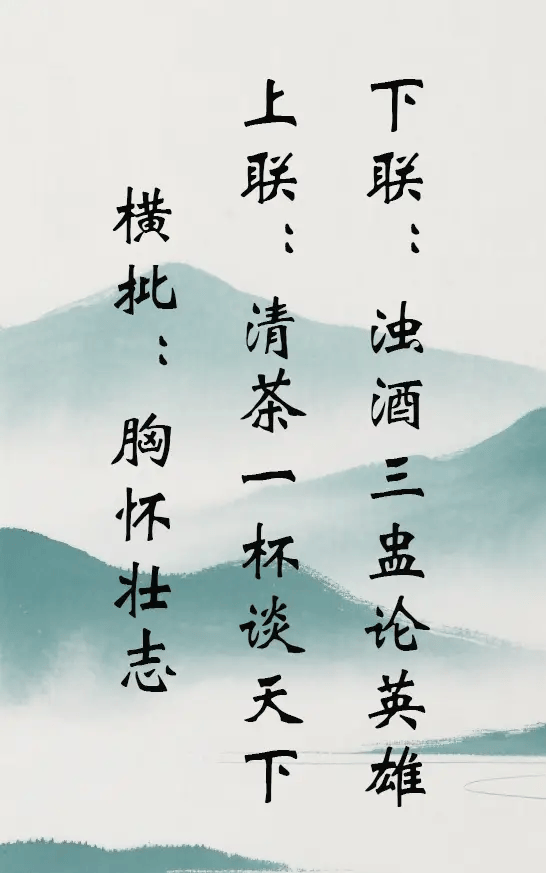 下联：浊酒三盅论英雄
上联：清茶一杯谈天下
横批：胸怀壮志